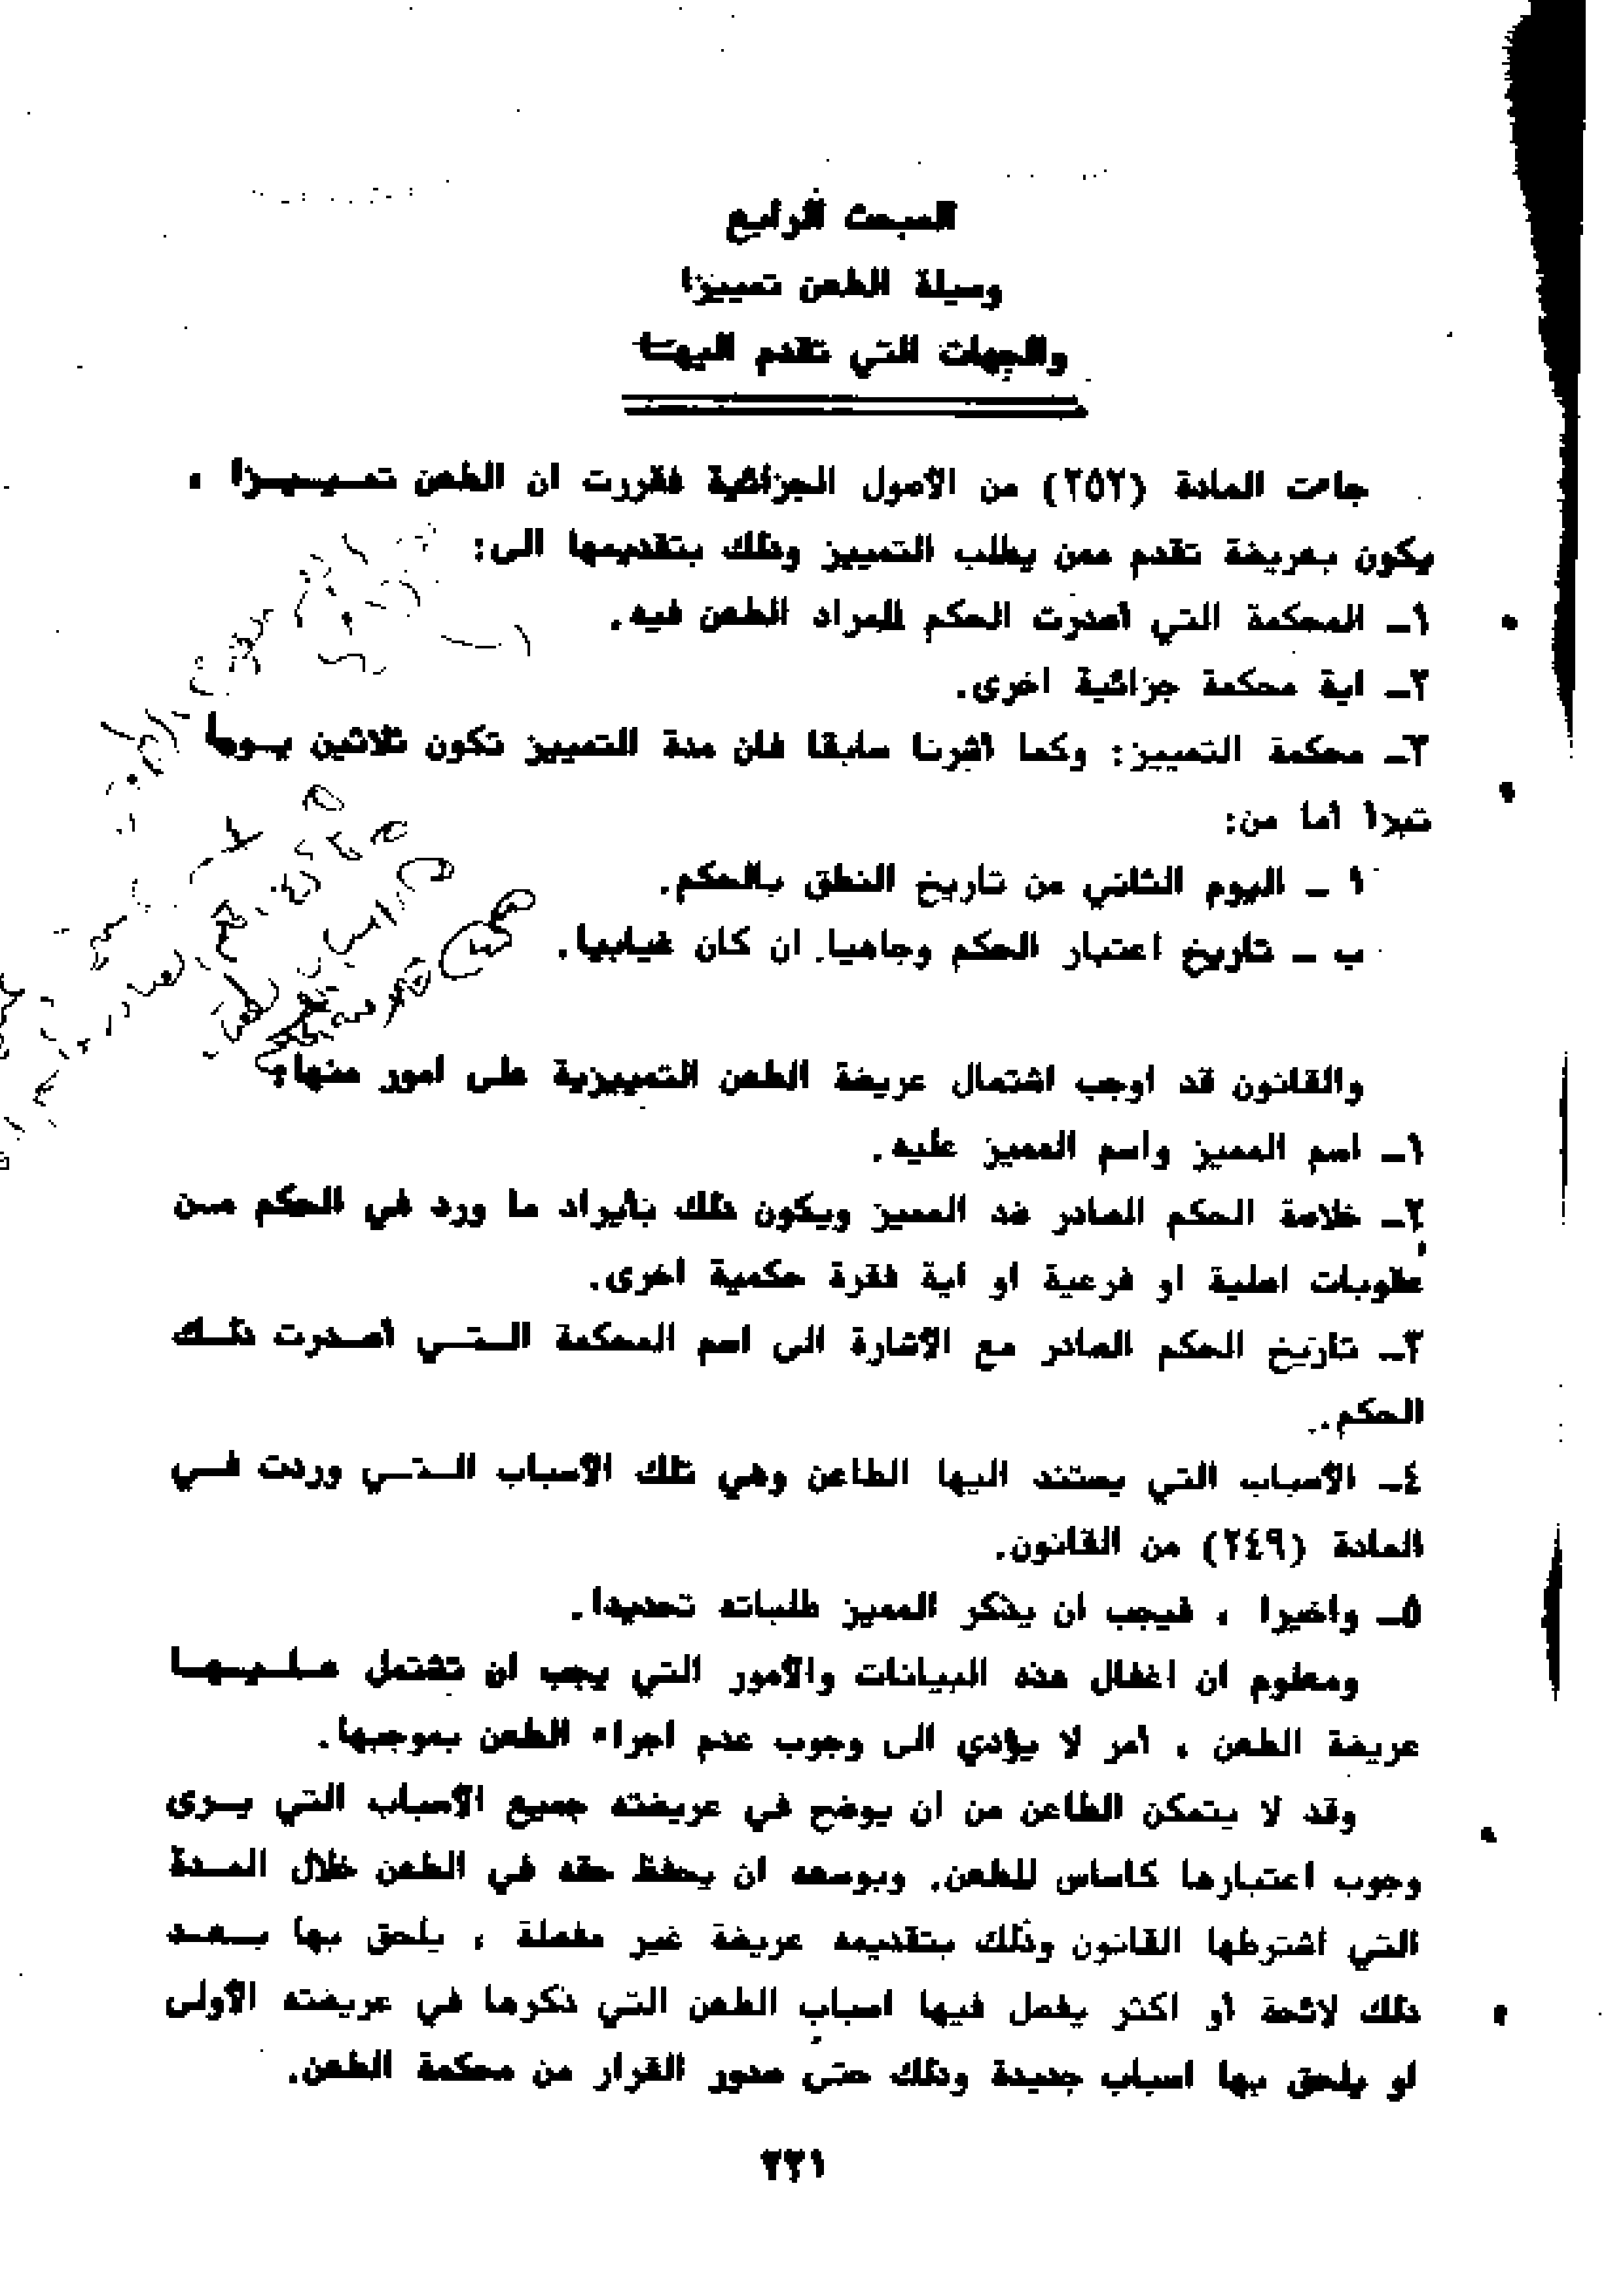 المبحث الرابع
وسيلة الطعن تمييزا
والجهات التي تقدم اليهـا
جاءت المادة (٢٥٢) من الأصول الجزائية فقررت ان الطعن تمـيـيـزا ،
يكون بعريضة تقدم ممن يطلب التمييز وذلك بتقديمها الى:
١ـ المحكمة التي أصدرت الحكم المراد الطعن فيه.
٢ـ اية محكمة جزائية اخرى.
٣ـ محكمة التمييز: وكما أشرنا سابقا فان مدة التمييز تكون ثلاثين يـوما
تبدأ أما من:
أ ـ اليوم الثاني من تاريخ النطق بالحكم.
ب ـ تاريخ اعتبار الحكم وجاهيا ان كان غيابيا.
والقانون قد اوجب اشتمال عريضة الطعن التمييزية على امور منها:
١ـ اسم المميز واسم المميز عليه.
٢ـ خلاصة الحكم الصادر ضد المميز ويكون ذلك بأيراد ما ورد في الحكم مـن
عقوبات اصلية او فرعية او اية فقرة حكمية اخرى.
٣ـ تاريخ الحكم الصادر مع الأشارة الى اسم المحكمة الـتـي أصـدرت ذلـك
الحكم.
٤ـ الأسباب التي يستند اليها الطاعن وهي تلك الأسباب الـتـي وردت فـي
المادة (٢٤٩) من القانون.
٥ـ واخيرا ، فيجب ان يذكر المميز طلباته تحديدا.
ومعلوم ان اغفال هذه البيانات والأمور التي يجب ان تشتمل عـلـيـهـا
عريضة الطعن ، أمر لا يؤدي الى وجوب عدم اجراء الطعن بموجبها.
وقد لا يتمكن الطاعن من ان يوضح في عريضته جميع الأسباب التي يـرى
وجوب اعتبارها كاساس للطعن. وبوسعه ان يحفظ حقه في الطعن خلال المـدة
التي اشترطها القانون وذلك بتقديمه عريضة غير مفصلة ، يلحق بها بـعـد
ذلك لائحة أو اكثر يفصل فيها اسباب الطعن التي ذكرها في عريضته الأولى
او يلحق بها اسباب جديدة وذلك حتى صدور القرار من محكمة الطعن.
٢٢١